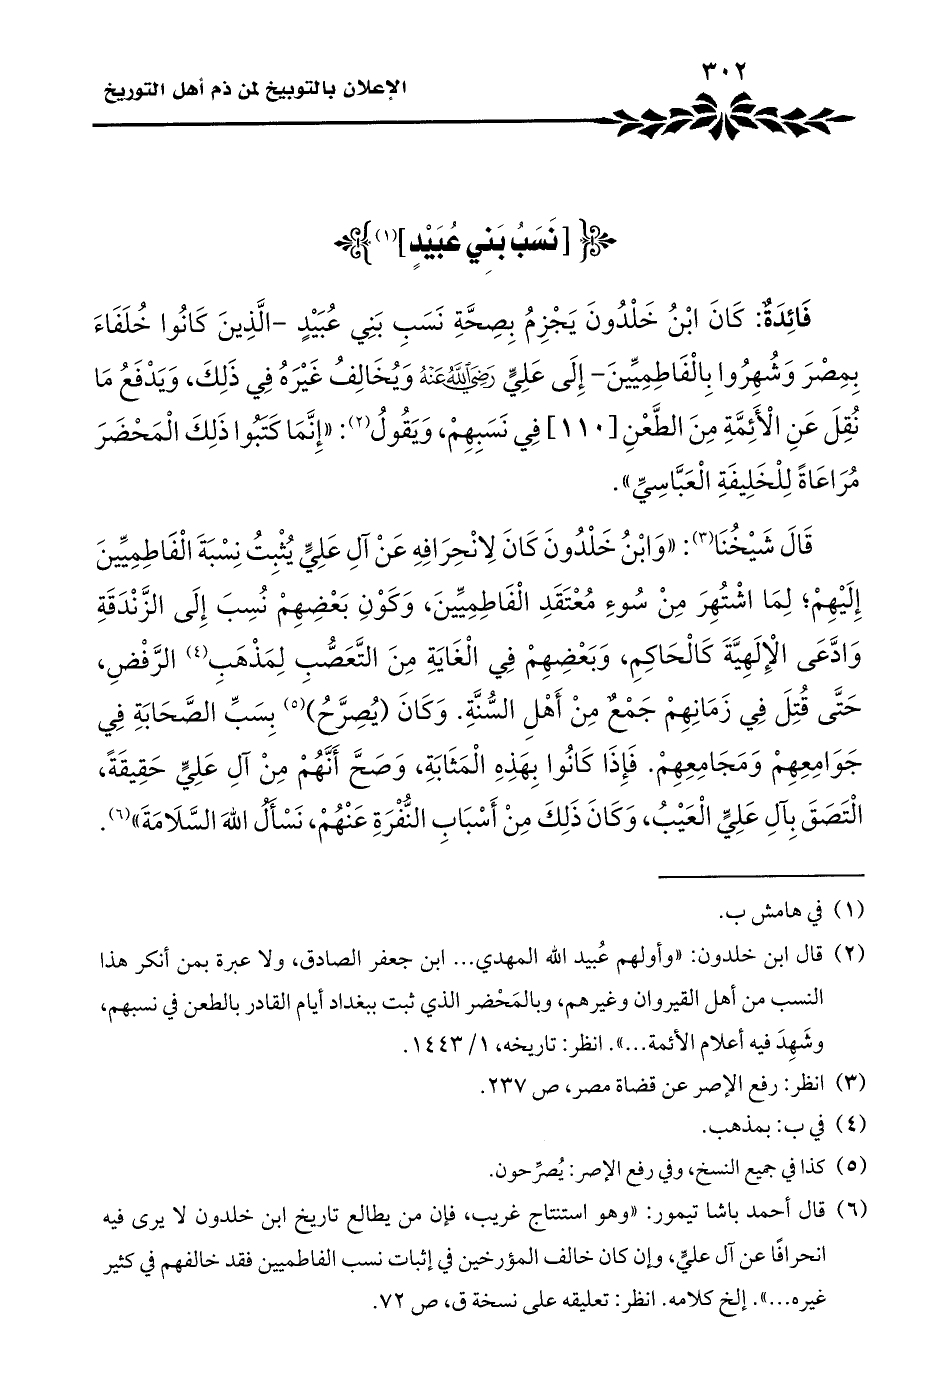 ٣٠٢
الإعلان بالتوبيخ لمن ذم أهل التوريخ
[نَسَبُ بَنِي عُبَيْدٍ](١)
فَائِدَةٌ: كَانَ ابْنُ خَلْدُونَ يَجْزِمُ بِصِحَّةِ نَسَبِ بَنِي عُبَيْدٍ -الَّذِينَ كَانُوا خُلَفَاءَ
بِمِصْرَ وَشُهِرُوا بِالْفَاطِمِيِّينَ- إِلَى عَلِيٍّ رَضِيَ اللَّهُ عَنْهُ وَيُخَالِفُ غَيْرَهُ فِي ذَلِكَ، وَيَدْفَعُ مَا
نُقِلَ عَنِ الْأَئِمَّةِ مِنَ الطَّعْنِ [١١٠] فِي نَسَبِهِمْ، وَيَقُولُ(٢): «إِنَّمَا كَتَبُوا ذَلِكَ الْمَحْضَرَ
مُرَاعَاةً لِلْخَلِيفَةِ الْعَبَّاسِيِّ».
قَالَ شَيْخُنَا(٣): «وَابْنُ خَلْدُونَ كَانَ لِانْحِرَافِهِ عَنْ آلِ عَلِيٍّ يُثْبِتُ نِسْبَةَ الْفَاطِمِيِّينَ
إِلَيْهِمْ؛ لِمَا اشْتُهِرَ مِنْ سُوءِ مُعْتَقَدِ الْفَاطِمِيِّينَ، وَكَوْنِ بَعْضِهِمْ نُسِبَ إِلَى الزَّنْدَقَةِ
وَادَّعَى الْإِلَهِيَّةَ كَالْحَاكِمِ، وَبَعْضِهِمْ فِي الْغَايَةِ مِنَ التَّعَصُّبِ لِمَذْهَبِ(٤) الرَّفْضِ،
حَتَّى قُتِلَ فِي زَمَانِهِمْ جَمْعٌ مِنْ أَهْلِ السُّنَّةِ. وَكَانَ (يُصَرَّحُ)(٥) بِسَبِّ الصَّحَابَةِ فِي
جَوَامِعِهِمْ وَمَجَامِعِهِمْ. فَإِذَا كَانُوا بِهَذِهِ الْمَثَابَةِ، وَصَحَّ أَنَّهُمْ مِنْ آلِ عَلِيٍّ حَقِيقَةً،
الْتَصَقَ بِآلِ عَلِيٍّ الْعَيْبُ، وَكَانَ ذَلِكَ مِنْ أَسْبَابِ النُّفْرَةِ عَنْهُمْ، نَسْأَلُ اللهَ السَّلَامَةَ»(٦).
(١) في هامش ب.
(٢) قال ابن خلدون: «وأولهم عُبيد الله المهدي... ابن جعفر الصادق، ولا عبرة بمن أنكر هذا
النسب من أهل القيروان وغيرهم، وبالمَحْضر الذي ثبت ببغداد أيام القادر بالطعن في نسبهم،
وشَهِدَ فيه أعلام الأئمة...». انظر: تاريخه، ١/ ١٤٤٣.
(٣) انظر: رفع الإصر عن قضاة مصر، ص ٢٣٧.
(٤) في ب: بمذهب.
(٥) كذا في جميع النسخ، وفي رفع الإصر: يُصرِّحون.
(٦) قال أحمد باشا تيمور: «وهو استنتاج غريب، فإن من يطالع تاريخ ابن خلدون لا يرى فيه
انحرافًا عن آل عليٍّ، وإن كان خالف المؤرخين في إثبات نسب الفاطميين فقد خالفهم في كثير
غيره...». إلخ كلامه. انظر: تعليقه على نسخة ق، ص ٧٢.